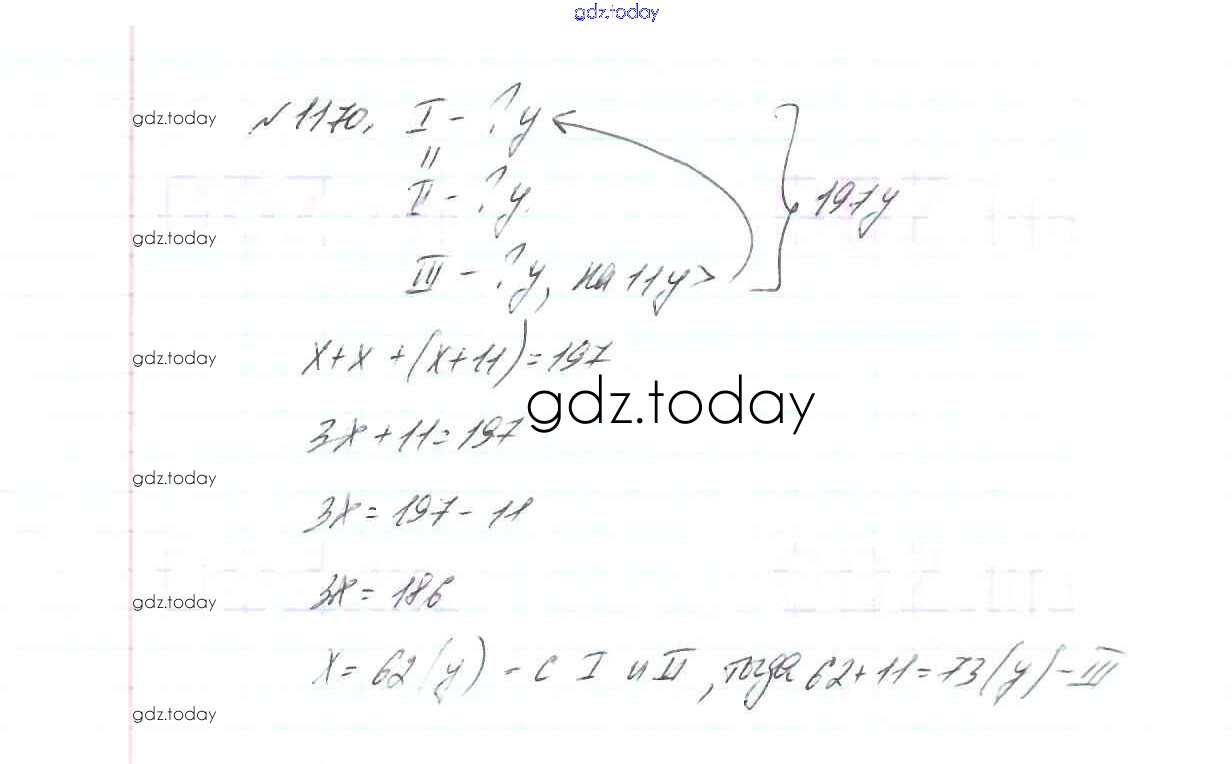 gdz.today
gdz.today №1170. I - ? ц
||
II - ? ц.
197ц
gdz.today
III - ? ц, на 11ц >
gdz.today x+x+(x+11)=197
gdz.today
3x+11=197
gdz.today
3x=197-11
gdz.today 3x=186
x=62(ц) - с I и II, тогда 62+11=73(ц)-III
gdz.today